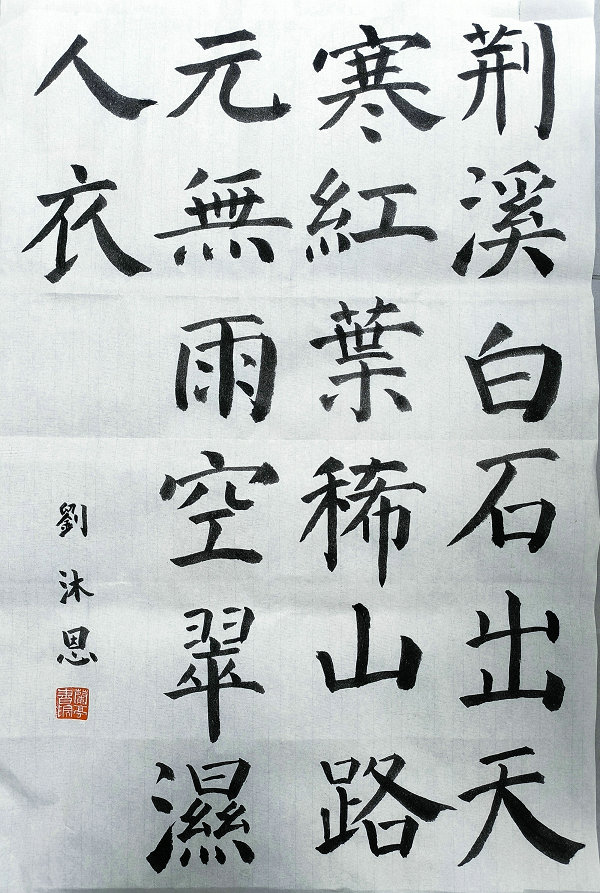 荆溪白石出天
寒紅葉稀山路
元無雨空翠濕
人衣
劉沐恩
蘭亭書坊